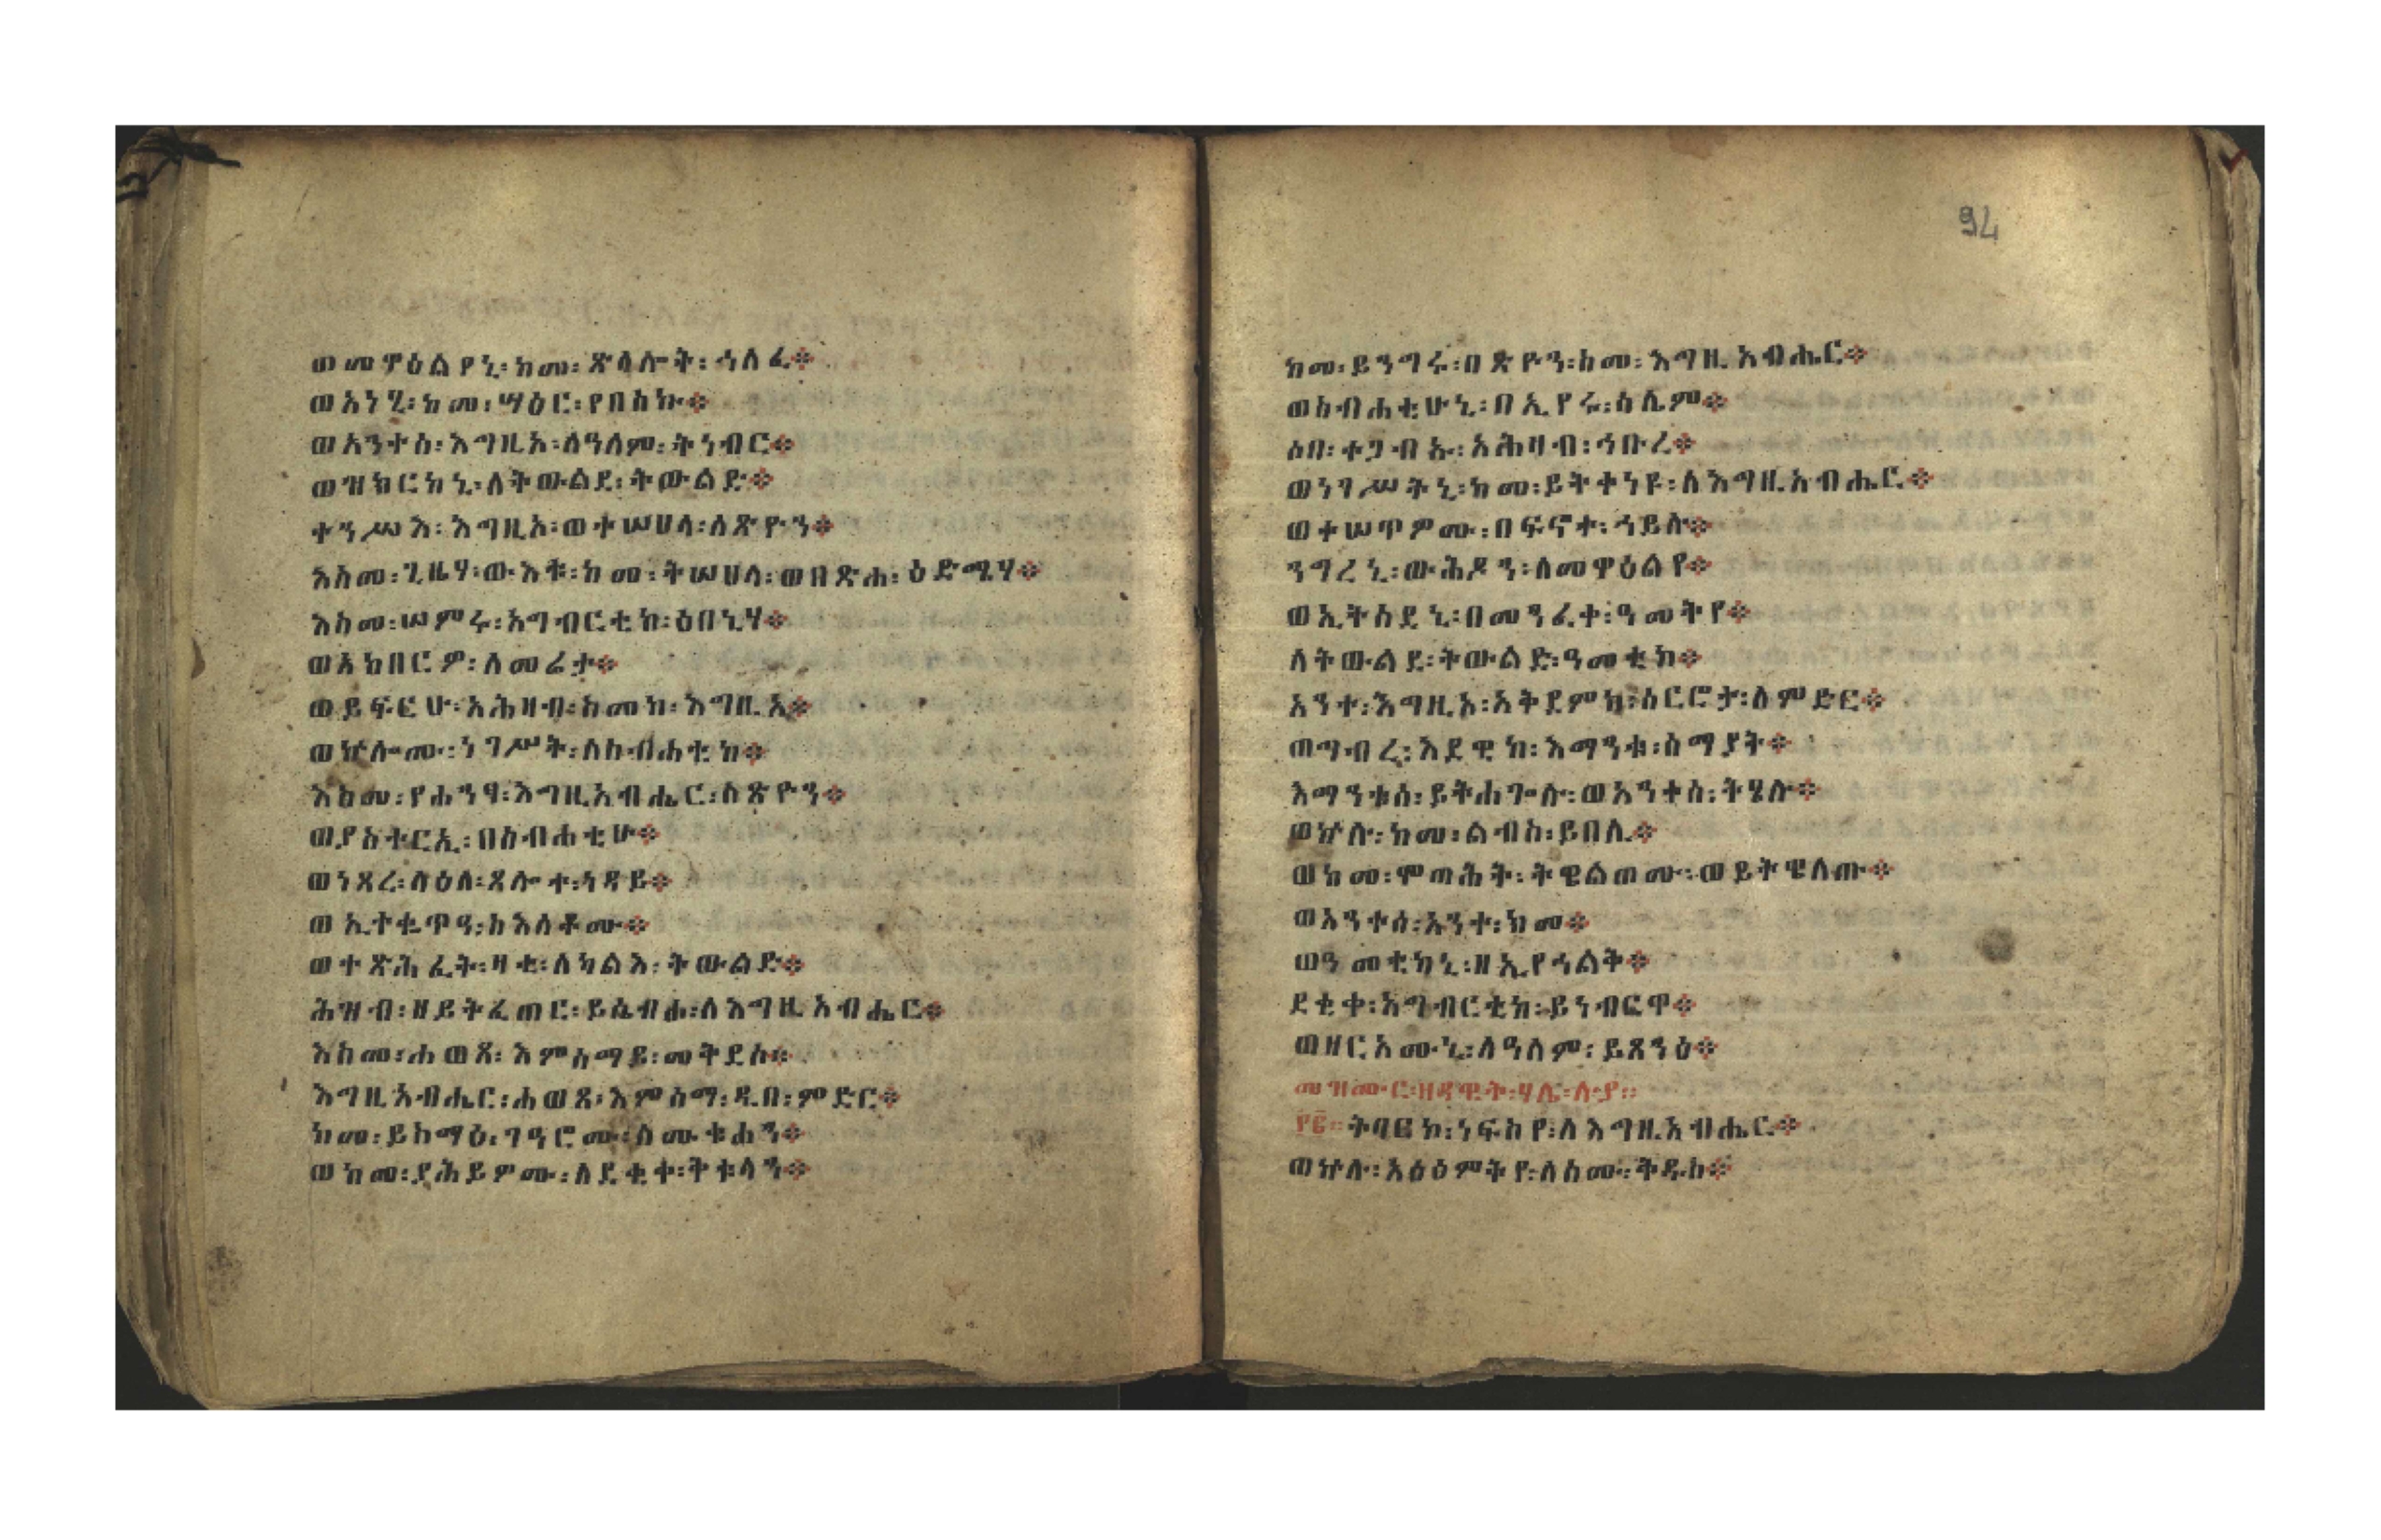 ወመዋዕልየኒ፡ከመ፡ጽላሎት፡ኀለፈ፨
ወአነሂ፡ከመ፡ሣዕር፡የበስኩ፨
ወአንተሰ፡እግዚኦ፡ለዓለም፡ትነብር፨
ወዝክርከኒ፡ለትውልደ፡ትውልድ፨
ተንሥእ፡እግዚኦ፡ወተሠሀላ፡ለጽዮን፨
እስመ፡ጊዜሃ፡ውእቱ፡ከመ፡ትሠሀላ፡ወበጽሐ፡ዕድሜሃ፨
እስመ፡ሠምሩ፡አግብርቲከ፡ዕበኒሃ፨
ወአክበርዎ፡ለመሬታ፨
ወይፍርሁ፡አሕዛብ፡ስመከ፡እግዚኦ፨
ወኵሎሙ፡ነገሥት፡ለስብሐቲከ፨
እስመ፡የሐንፃ፡እግዚአብሔር፡ለጽዮን፨
ወያስትርኢ፡በስብሐቲሁ፨
ወነጸረ፡ላዕለ፡ጸሎተ፡ነዳይ፨
ወኢተቈጥዓ፡ስእለቶሙ፨
ወተጽሕፈት፡ዛቲ፡ለካልእ፡ትውልድ፨
ሕዝብ፡ዘይትፈጠር፡ይሴብሖ፡ለእግዚአብሔር፨
እስመ፡ሐወጸ፡እምሰማይ፡መቅደሱ፨
እግዚአብሔር፡ሐወጸ፡እምሰማ፡ዲበ፡ምድር፨
ከመ፡ይስማዕ፡ገዓሮሙ፡ለሙቁሐን፨
ወከመ፡ያሕይዎሙ፡ለደቂቀ፡ቅቱላን፨
94
ከመ፡ይንግሩ፡በጽዮን፡ስመ፡እግዚአብሔር፨
ወስብሐቲሁኒ፡በኢየሩሳሌም፨
ሶበ፡ተጋብኡ፡አሕዛብ፡ኅቡረ፨
ወነገሥትኒ፡ከመ፡ይትቀነዩ፡ለእግዚአብሔር፨
ወተሠጥዎሙ፡በፍኖተ፡ኀይሉ፨
ንግረኒ፡ውሕዶን፡ለመዋዕልየ፨
ወኢትስደኒ፡በመንፈቀ፡ዓመትየ፨
ለትውልደ፡ትውልድ፡ዓመቲከ፨
አንተ፡እግዚኦ፡አቅደምከ፡ሳርሮታ፡ለምድር፨
ወግብረ፡እደዊከ፡እማንቱ፡ሰማያት፨
እማንቱሰ፡ይትሐጐሉ፡ወአንተሰ፡ትሄሉ፨
ወኵሉ፡ከመ፡ልብስ፡ይበሊ፨
ወከመ፡ሞጣሕት፡ትዌልጦሙ፡ወይትዌለጡ፨
ወአንተሰ፡አንተ፡ክመ፨
ወዓመቲከኒ፡ዘኢየኀልቅ፨
ደቂቀ፡አግብርቲከ፡ይነብርዋ፨
ወዘርአሙኒ፡ለዓለም፡ይጸንዕ፨
መዝሙር፡ዘዳዊት፡ሃሌ፡ሉያ።
፻፪። ትባርኮ፡ነፍስየ፡ለእግዚአብሔር፨
ወኵሉ፡አዕፅምትየ፡ለስሙ፡ቅዱስ፨